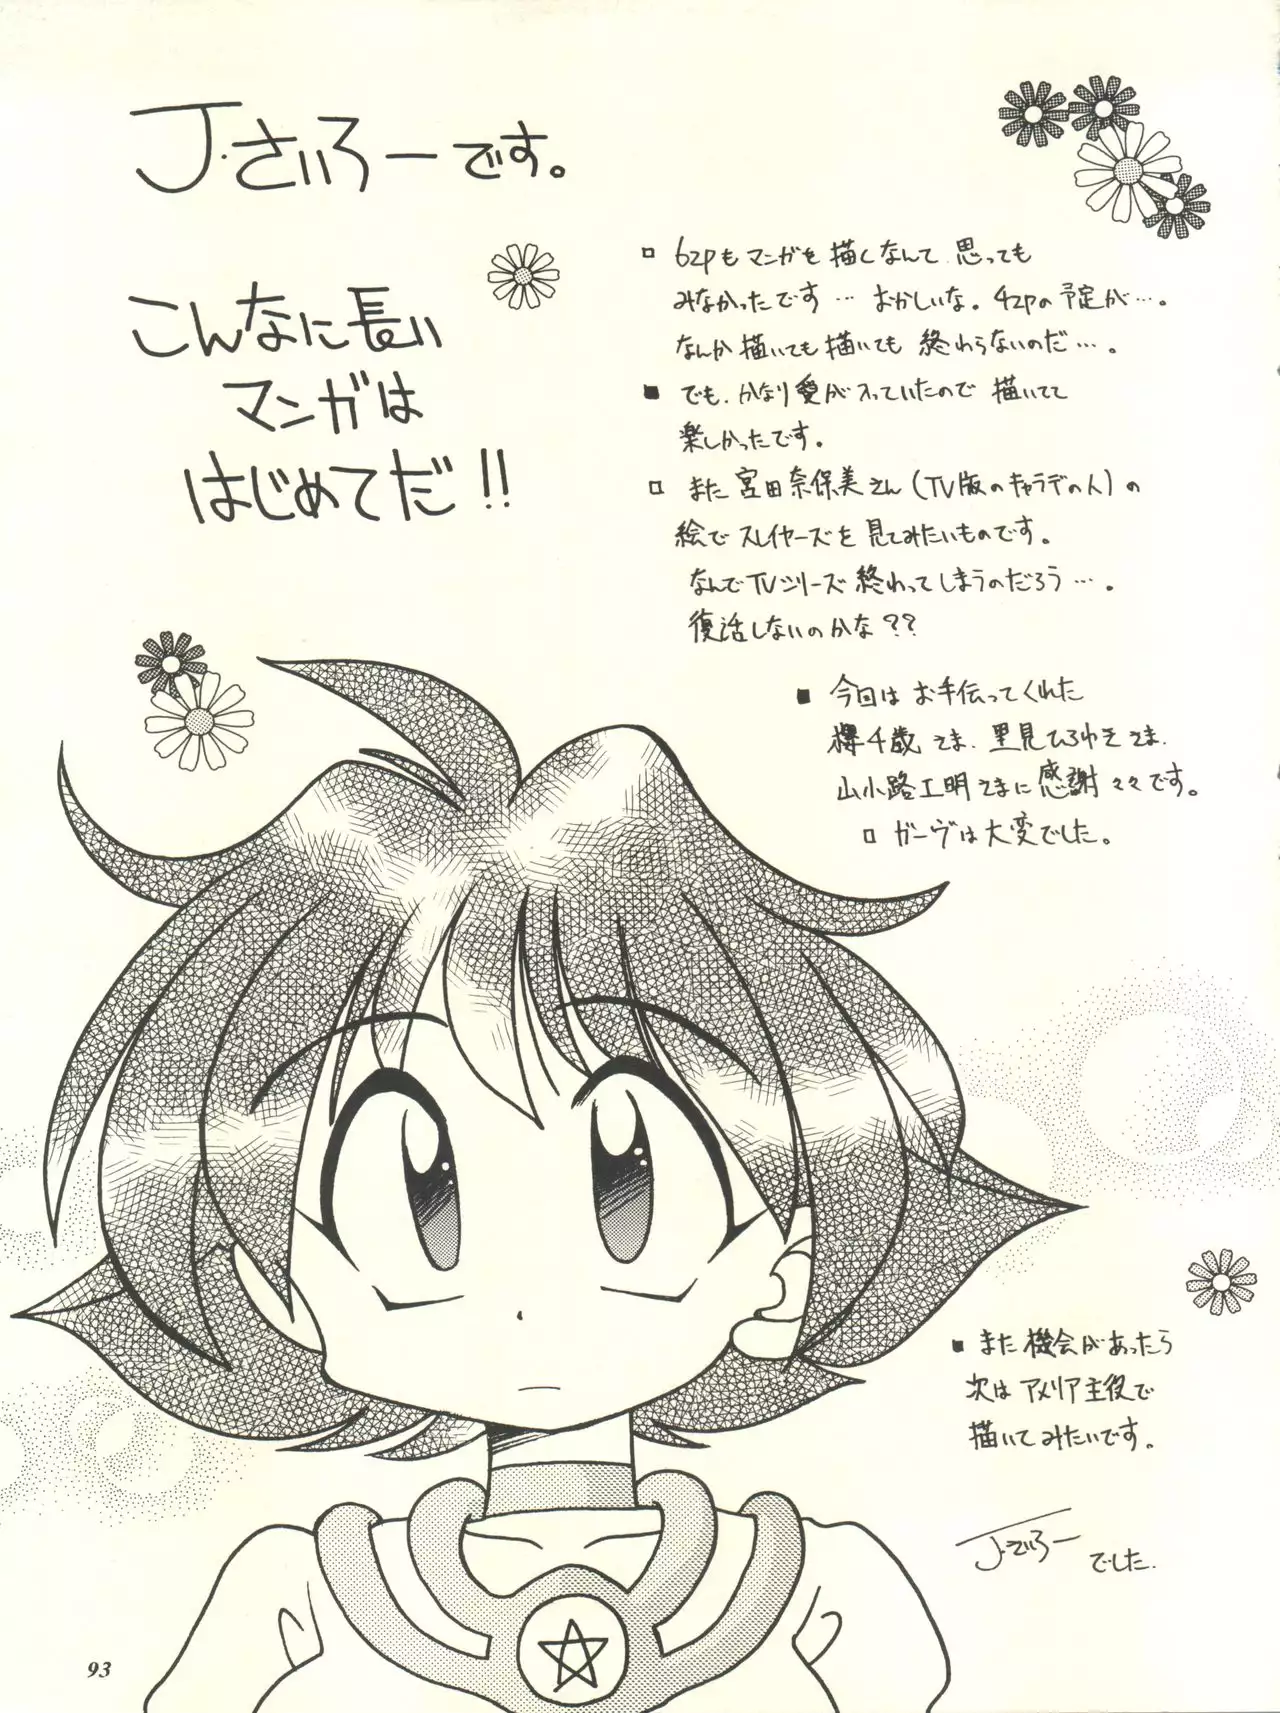 J・さいろーです。
こんなに長い
マンガは
はじめてだ!!
□ 62pもマンガを描くなんて思っても
みなかったです…おかしいな。42pの予定が…。
なんか描いても描いても終わらないのだ…。
■ でも、かなり愛が入っていたので描いてて
楽しかったです。
□ また宮田奈保美さん(TV版のキャラデの人)の
絵でスレイヤーズを見てみたいものです。
なんでTVシリーズ終わってしまうのだろう…。
復活しないのかな??
■ 今回はお手伝ってくれた
欅千歳さま、里見ひろわそさま、
山小路工明さまに感謝々々です。
□ ガーヴは大変でした。
■ また機会があったら
次はアメリア主役で
描いてみたいです。
J・さいろー
でした。
93